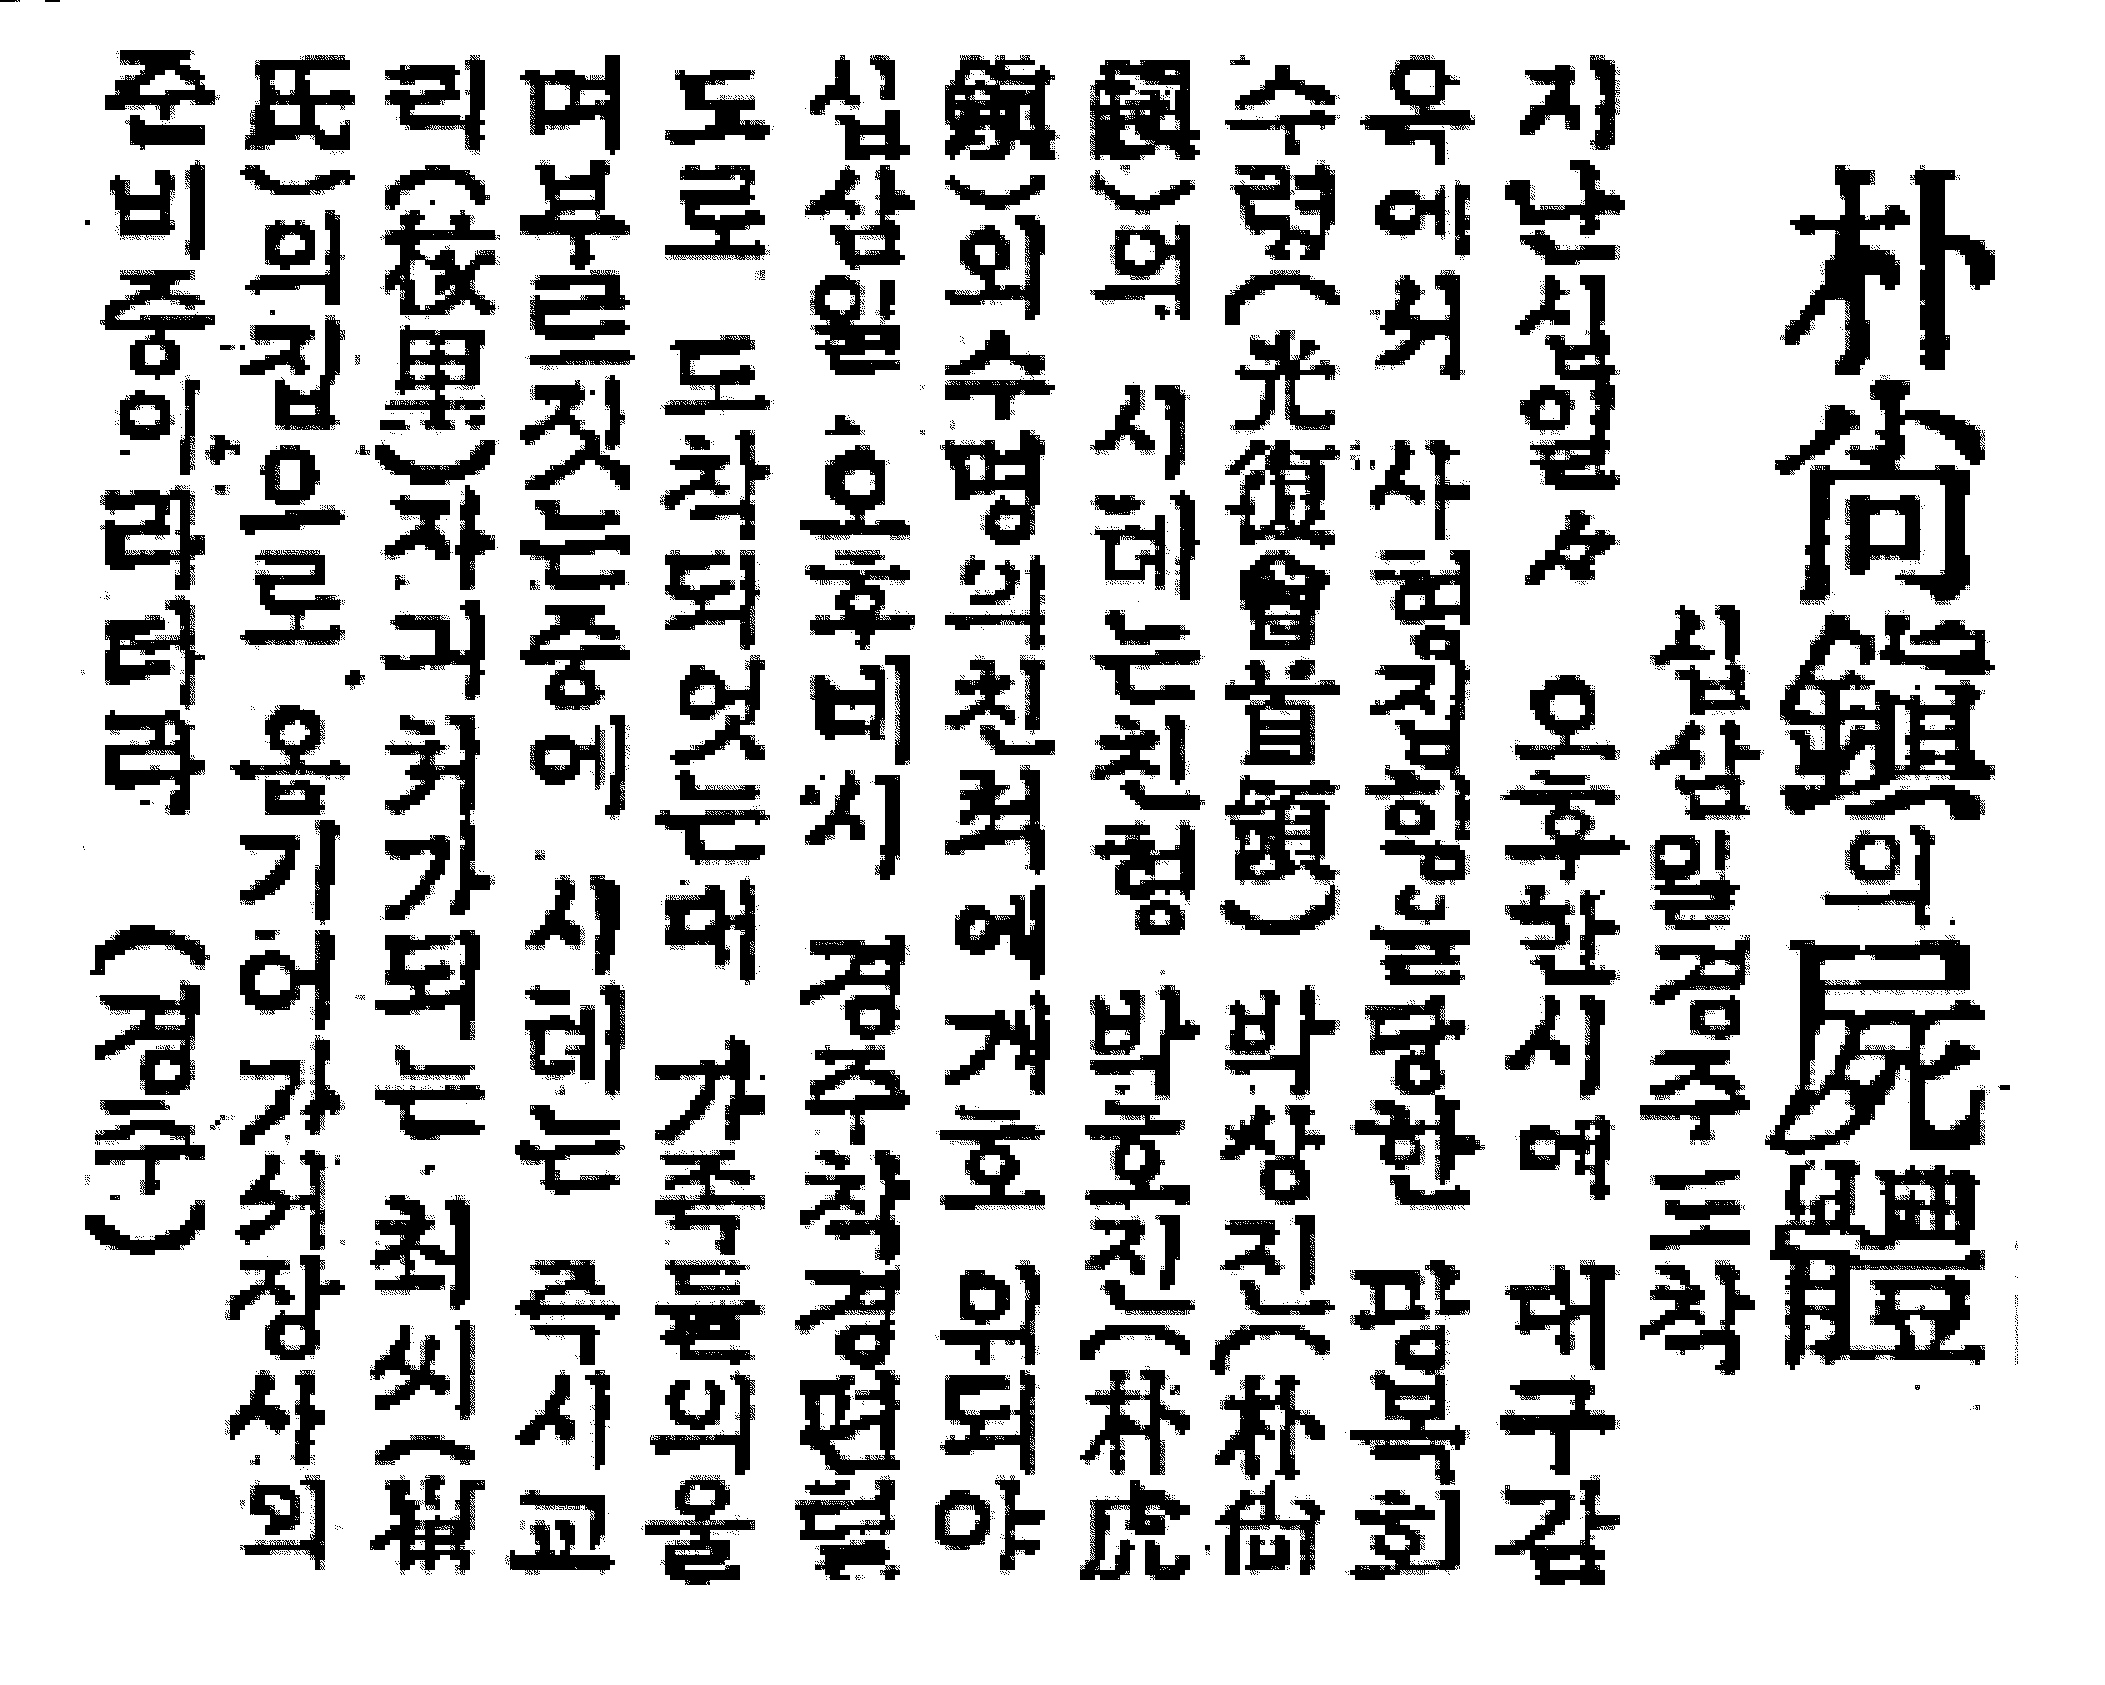 朴尙鎭의屍體
십삼일경주도착
지난십일々 오후한시에 대구감
옥에서 사형집힝을당한 광복회
수령(光復會首領) 박상진(朴尙
鎭)의 시톄는친형 박호진(朴虎
鎭)외수명의친척에게호 위되야
십삼일 오후네시 경주착경편털
도로 도착되엿는대 가족들의울
며부르짓는중에 시톄는 즉시교
리(校里)자긔처가되는 최씨(崔
氏)의집으로 옴기어가서장사의
준비중이라더라 (경주)